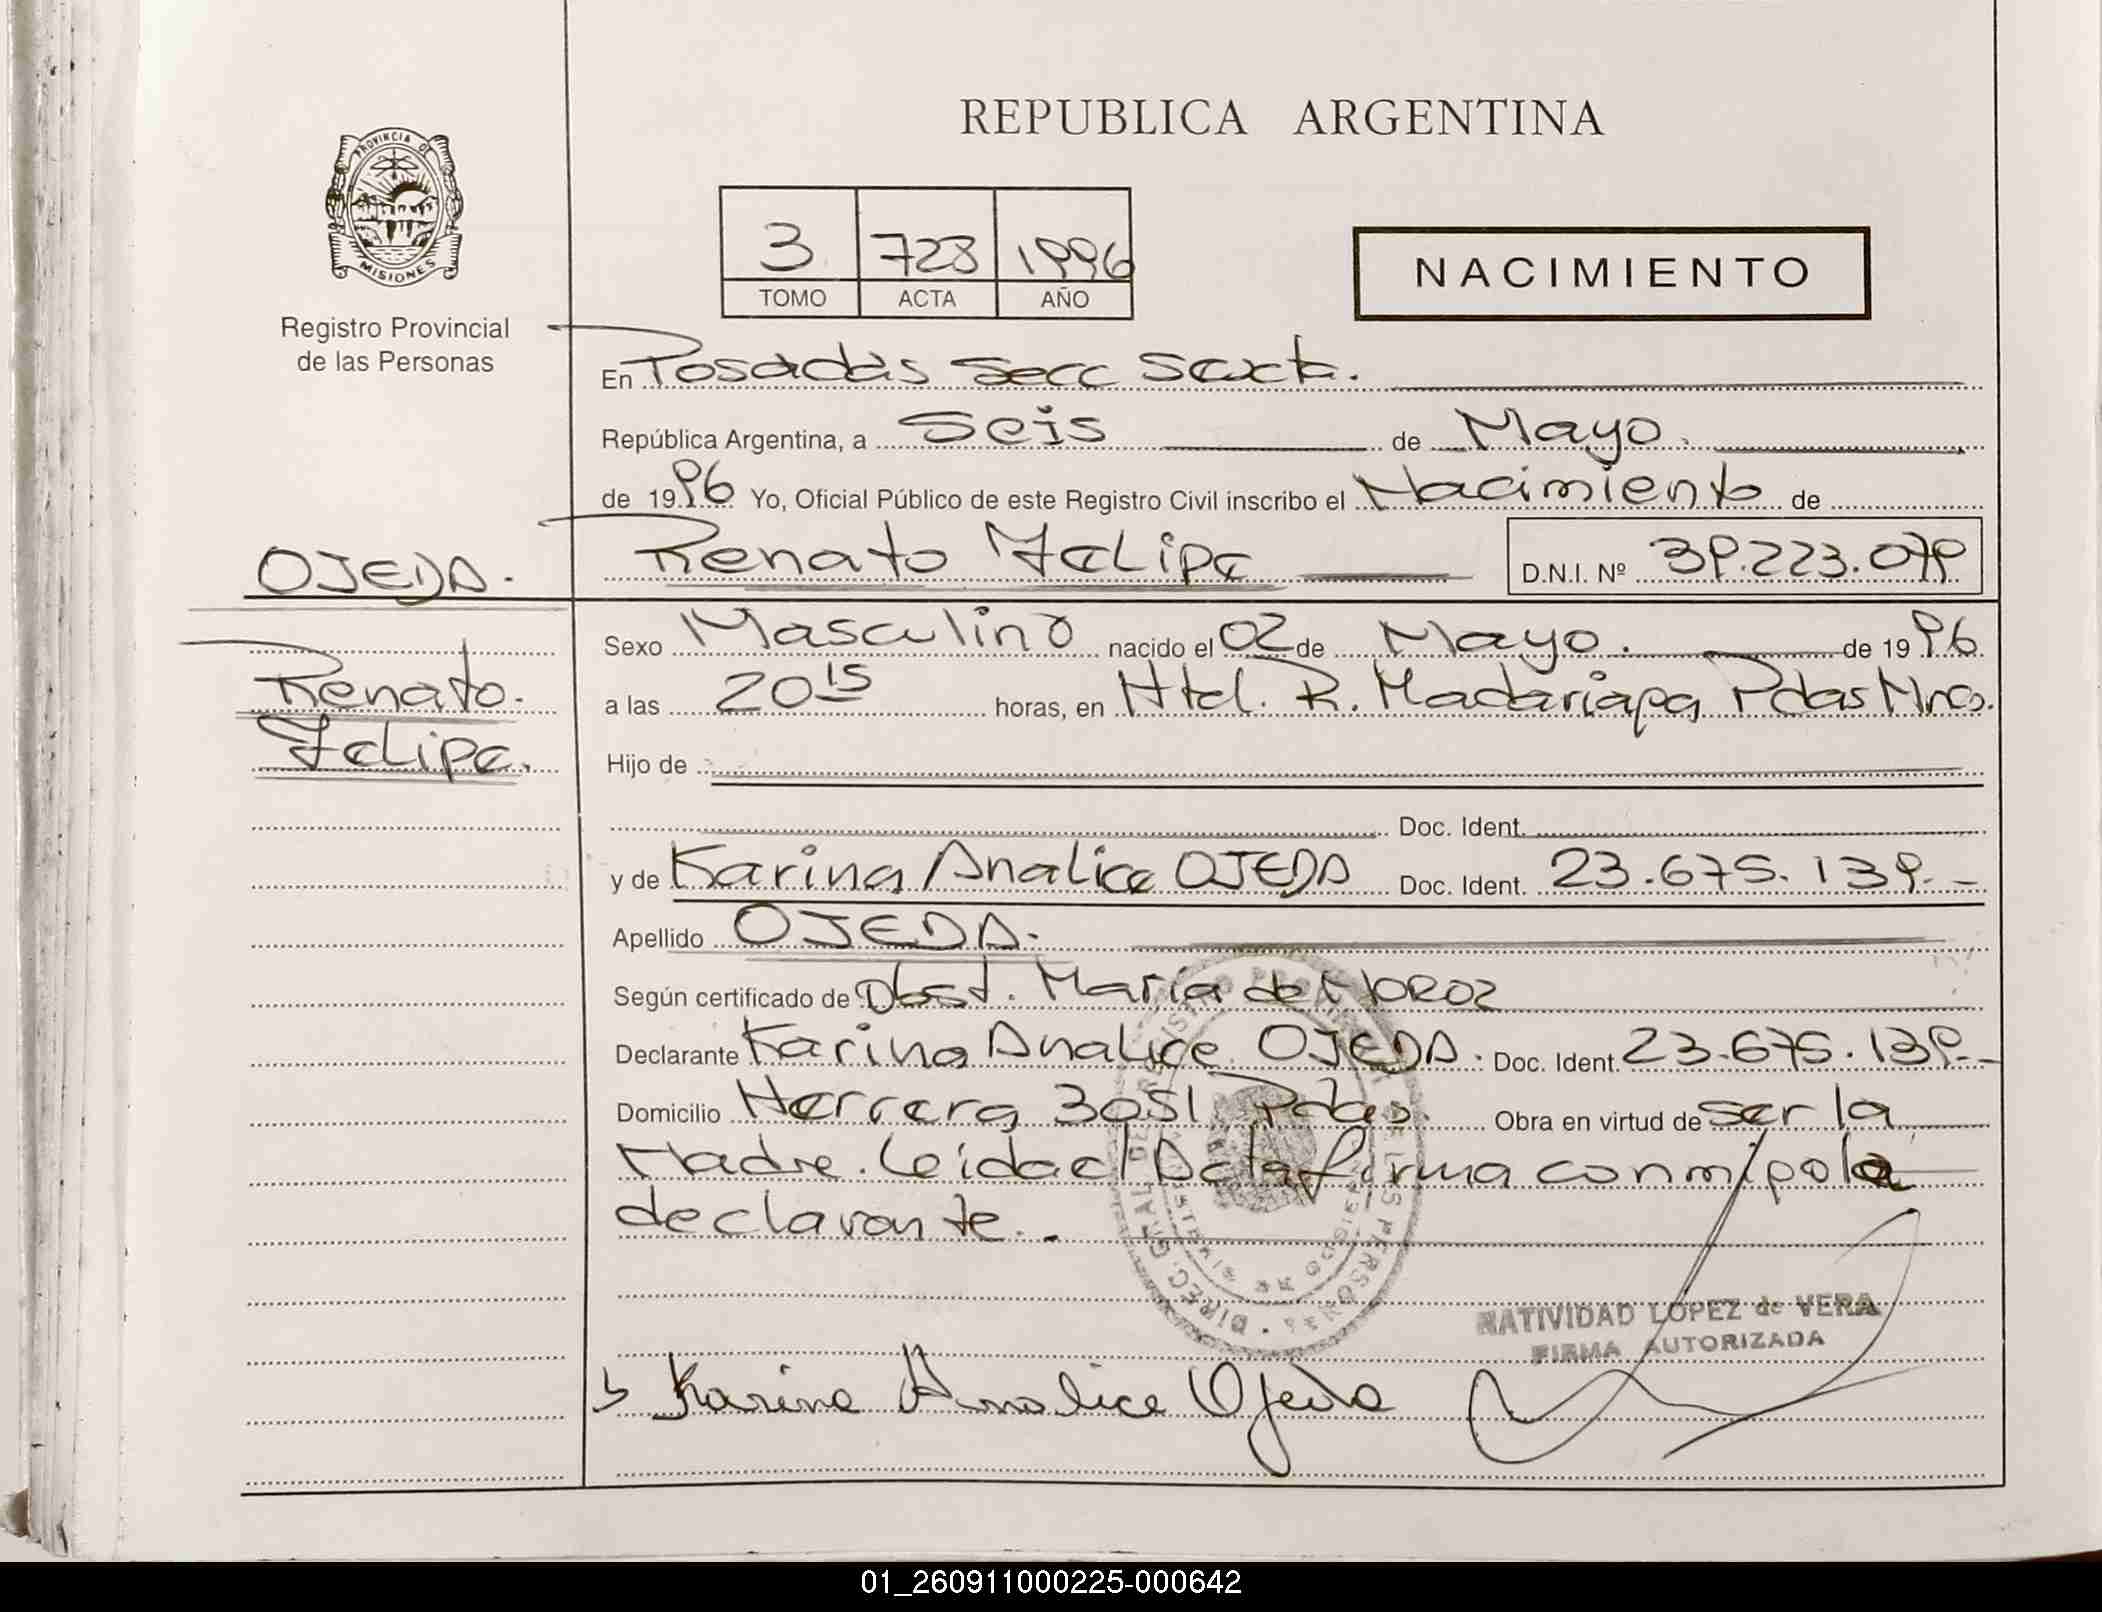 REPUBLICA ARGENTINA
PROVINCIA DE
MISIONES
Registro Provincial
de las Personas
3 728 1996
TOMO ACTA AÑO
NACIMIENTO
En Posadas Secc Sexta.
República Argentina, a Seis de Mayo.
de 1996 Yo, Oficial Público de este Registro Civil inscribo el Nacimiento de
OJEDA. Renato Felipe D.N.I. Nº 39.223.079
Renato.
Felipe.
Sexo Masculino nacido el 02 de Mayo. de 1996
a las 20 15 horas, en Htal. R. Madariaga Pdas Mnes.
Hijo de
Doc. Ident.
y de Karina Analice OJEDA Doc. Ident. 23.675.139.-
Apellido OJEDA.
Según certificado de Obst. María de MOROZ
Declarante Karina Analice OJEDA. Doc. Ident. 23.675.139.-
Domicilio Herrera 3051 Pdas. Obra en virtud de ser la
Madre. Leida el Acta firma conmigo la
declarante.-
NATIVIDAD LOPEZ de VERA
FIRMA AUTORIZADA
Karina Analice Ojeda
01_260911000225-000642